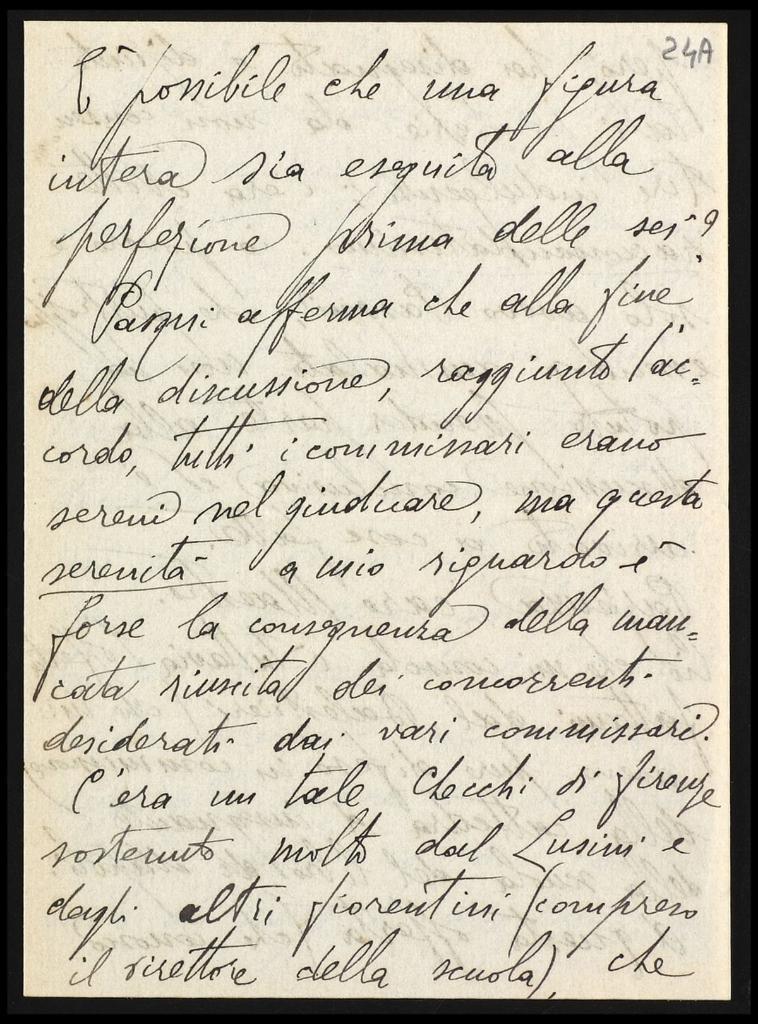 24A
È possibile che una figura
intera sia eseguita alla
perfezione prima delle sei?
afferma che alla fine
della discussione, raggiunto l'ac=
cordo, tutti i commissari erano
sereni nel giudicare, ma questa
serenità a mio riguardo è
forse la conseguenza della man=
cata riuscita dei concorrenti
desiderati dai vari commissari.
C'era un tale Checchi di firenze
sostenuto molto dal Lusini e
dagli altri fiorentini (compreso
il direttore della scuola), che